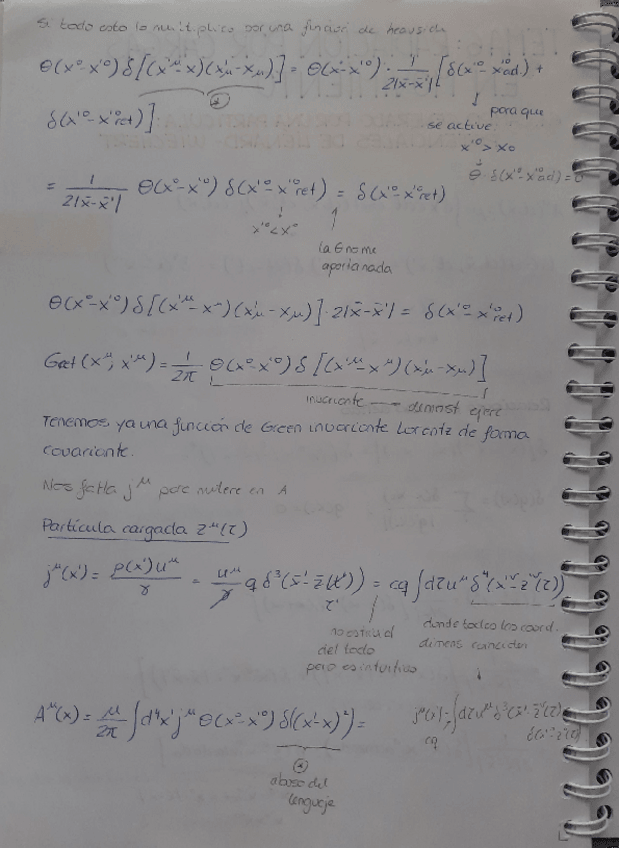 Si todo esto lo multiplico por una función de heavside
θ(x⁰-x'⁰) δ[(x'^μ-x)(x'_μ-x_μ)] = θ(x⁰-x'⁰) · 1/2|x̄-x̄'| [δ(x'⁰-x'⁰_ad) +
δ(x'⁰-x'⁰_ret)]
para que
se active
x'⁰ > x⁰
θ · δ(x'⁰-x'⁰_ad) = 0
= 1/2|x̄-x̄'| θ(x⁰-x'⁰) δ(x'⁰-x'⁰_ret) = δ(x'⁰-x'⁰_ret)
x'⁰ < x⁰
la θ no me
aporta nada
θ(x⁰-x'⁰) δ[(x'^μ-x^μ)(x'_μ-x_μ)] · 2|x̄-x̄'| = δ(x'⁰-x'⁰_ret)
Gret(x^μ, x'^μ) = 1/2π θ(x⁰-x'⁰) δ[(x'^μ-x^μ)(x'_μ-x_μ)]
invariante demost ejerc
Tenemos ya una función de Green invariante Lorentz de forma
covariante.
Nos falta j^μ para meter en A
Partícula cargada z^μ(τ)
j^μ(x') = ρ(x')u^μ/γ = u^μ/γ q δ³(x̄'-z̄(t')) = cq ∫dτ u^μ δ⁴(x'^ν-z^ν(τ))
τ'
no es trud
del todo
pero es intuitivo
donde todas las coord.
dimens coinciden
A^μ(x) = μ/2π ∫d⁴x' j^μ θ(x⁰-x'⁰) δ((x'-x)²) =
abuso del
lenguaje
cq